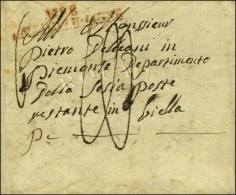 All Monsieur
Pietro in
Piemonte Departimento
Della Sesia Poste
restante in Biella
Pe